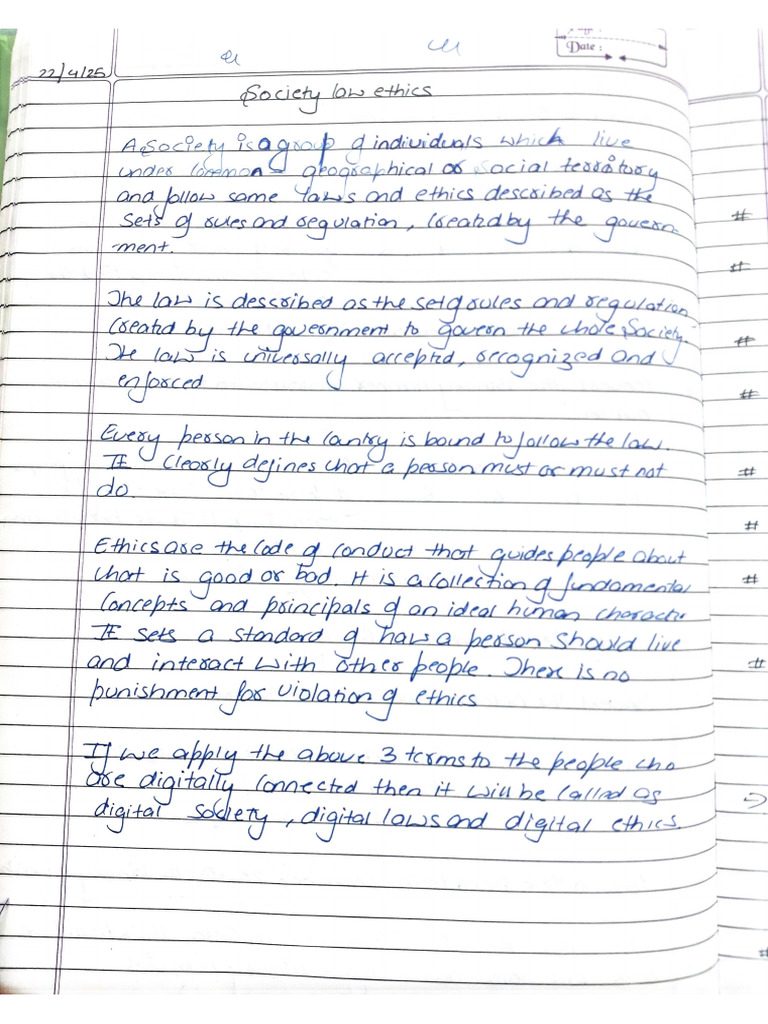 Date :
22/4/25
Society law ethics
A society is a group of individuals which live
under common geographical or social territory
and follow same laws and ethics described as the
sets of rules and regulation, created by the govern-
ment.
The law is described as the set of rules and regulation
created by the government to govern the whole society.
The law is universally accepted, recognized and
enforced
Every person in the country is bound to follow the law.
It clearly defines what a person must or must not
do.
Ethics are the code of conduct that guides people about
what is good or bad. It is a collection of fundamental
concepts and principals of an ideal human character
It sets a standard of how a person should live
and interact with other people. There is no
punishment for violation of ethics
If we apply the above 3 terms to the people who
are digitally connected then it will be called as
digital society, digital laws and digital ethics.